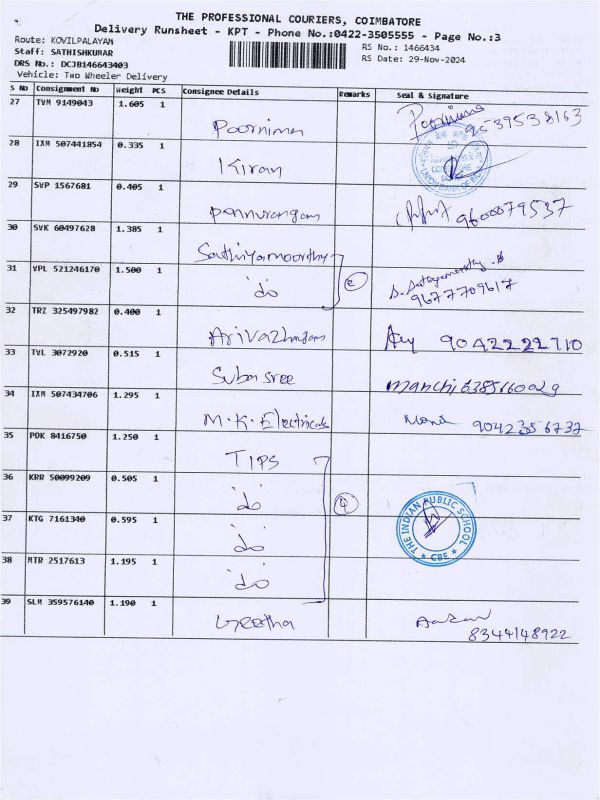 THE PROFESSIONAL COURIERS, COIMBATORE
Delivery Runsheet - KPT - Phone No.:0422-3505555 - Page No.:3
Route: KOVILPALAYAM
RS No.: 1466434
Staff: SATHISHKUMAR
RS Date: 29-Nov-2024
DRS No.: DCJB146643403
Vehicle: Two Wheeler Delivery
S No Consignment No Weight PCS Consignee Details Remarks Seal & Signature
27 TVM 9149043 1.605 1 Poornima Poornima 9539538163
28 IXM 507441854 0.335 1 Kiran
UNION BANK OF
29 SVP 1567681 0.405 1 Pannurangam 9600079537
30 SVK 60497628 1.385 1 Sathiyamoorthy
31 VPL 521246170 1.500 1 do 2 S. Sathiyamoorthy 9677709617
32 TRZ 325497982 0.400 1 Arivazhagam 9042222710
33 TVL 3072920 0.515 1 Subasree
34 IXM 507434706 1.295 1 M.K. Electricals Mani
35 PDK 8416750 1.250 1 TIPS
36 KRR 50099209 0.505 1 do 4
37 KTG 7161340 0.595 1 do
THE INDIAN PUBLIC SCHOOL
* CBE *
38 MTR 2517613 1.195 1 do
39 SLM 359576140 1.190 1 Geetha
8344148922